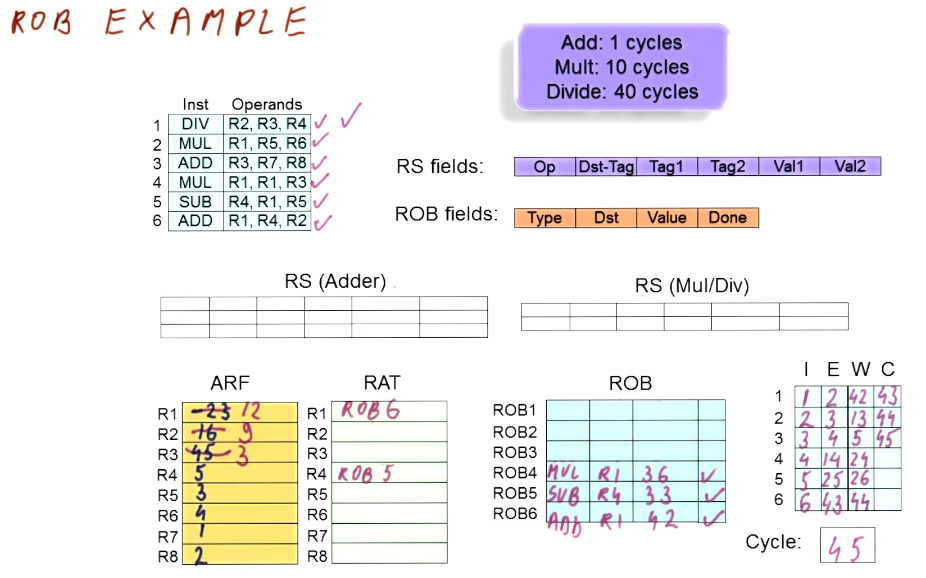 ROB EXAMPLE
Add: 1 cycles
Mult: 10 cycles
Divide: 40 cycles
Inst Operands
1 DIV R2, R3, R4 ✓ ✓
2 MUL R1, R5, R6 ✓
3 ADD R3, R7, R8 ✓
4 MUL R1, R1, R3 ✓
5 SUB R4, R1, R5 ✓
6 ADD R1, R4, R2 ✓
RS fields: Op Dst-Tag Tag1 Tag2 Val1 Val2
ROB fields: Type Dst Value Done
RS (Adder)
RS (Mul/Div)
ARF
R1 -23 12
R2 16 9
R3 45 3
R4 5
R5 3
R6 4
R7 1
R8 2
RAT
R1 ROB 6
R2
R3
R4 ROB 5
R5
R6
R7
R8
ROB
ROB1
ROB2
ROB3
ROB4 MUL R1 36 ✓
ROB5 SUB R4 33 ✓
ROB6 ADD R1 42 ✓
I E W C
1 1 2 42 43
2 2 3 13 44
3 3 4 5 45
4 4 14 24
5 5 25 26
6 6 43 44
Cycle: 45